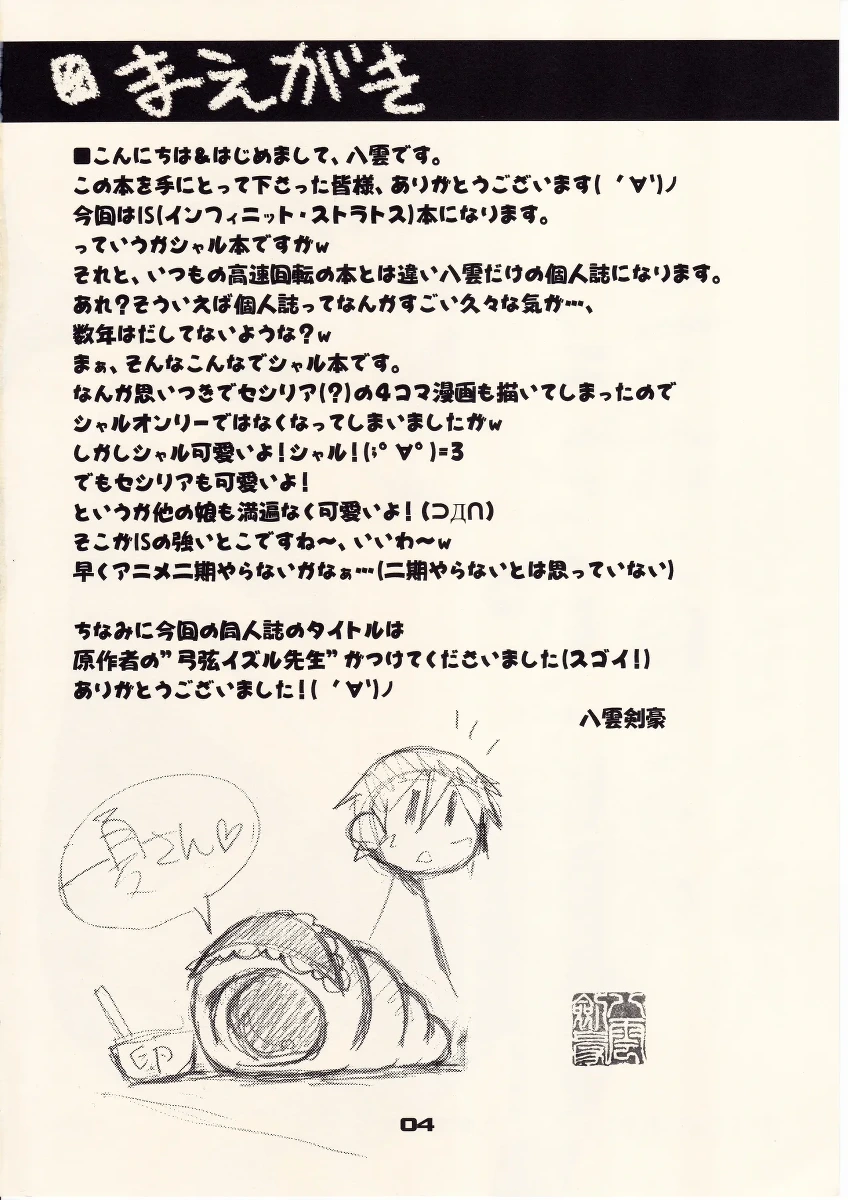 まえがき
■こんにちは&はじめまして、八雲です。
この本を手にとって下さった皆様、ありがとうございます( ´∀`)ノ
今回はIS(インフィニット・ストラトス)本になります。
っていうかシャル本ですがw
それと、いつもの高速回転の本とは違い八雲だけの個人誌になります。
あれ?そういえば個人誌ってなんかすごい久々な気が…、
数年はだしてないような?w
まぁ、そんなこんなでシャル本です。
なんか思いつきでセシリア(?)の4コマ漫画も描いてしまったので
シャルオンリーではなくなってしまいましたがw
しかしシャル可愛いよ!シャル!(;゚∀゚)=3
でもセシリアも可愛いよ!
というか他の娘も満遍なく可愛いよ!(⊃Д∩)
そこがISの強いとこですね〜、いいわ〜w
早くアニメ二期やらないかなぁ…(二期やらないとは思っていない)
ちなみに今回の同人誌のタイトルは
原作者の"弓弦イズル先生"がつけてくださいました(スゴイ!)
ありがとうございました!( ´∀`)ノ
八雲剣豪
一夏さん♡
八雲剣豪
04